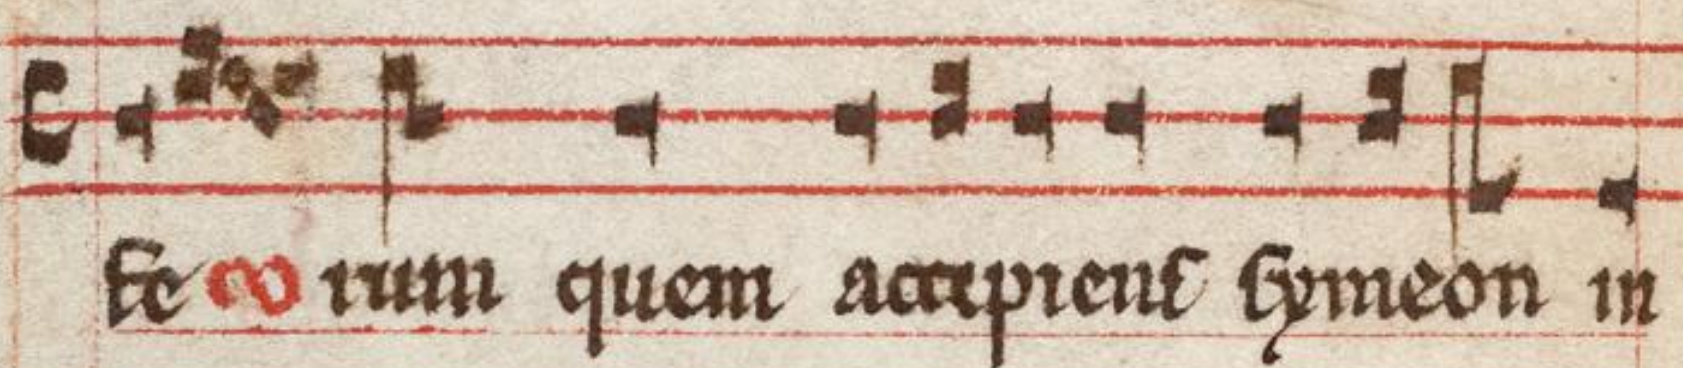 ſeculorum quem accipienſ ſymeon in